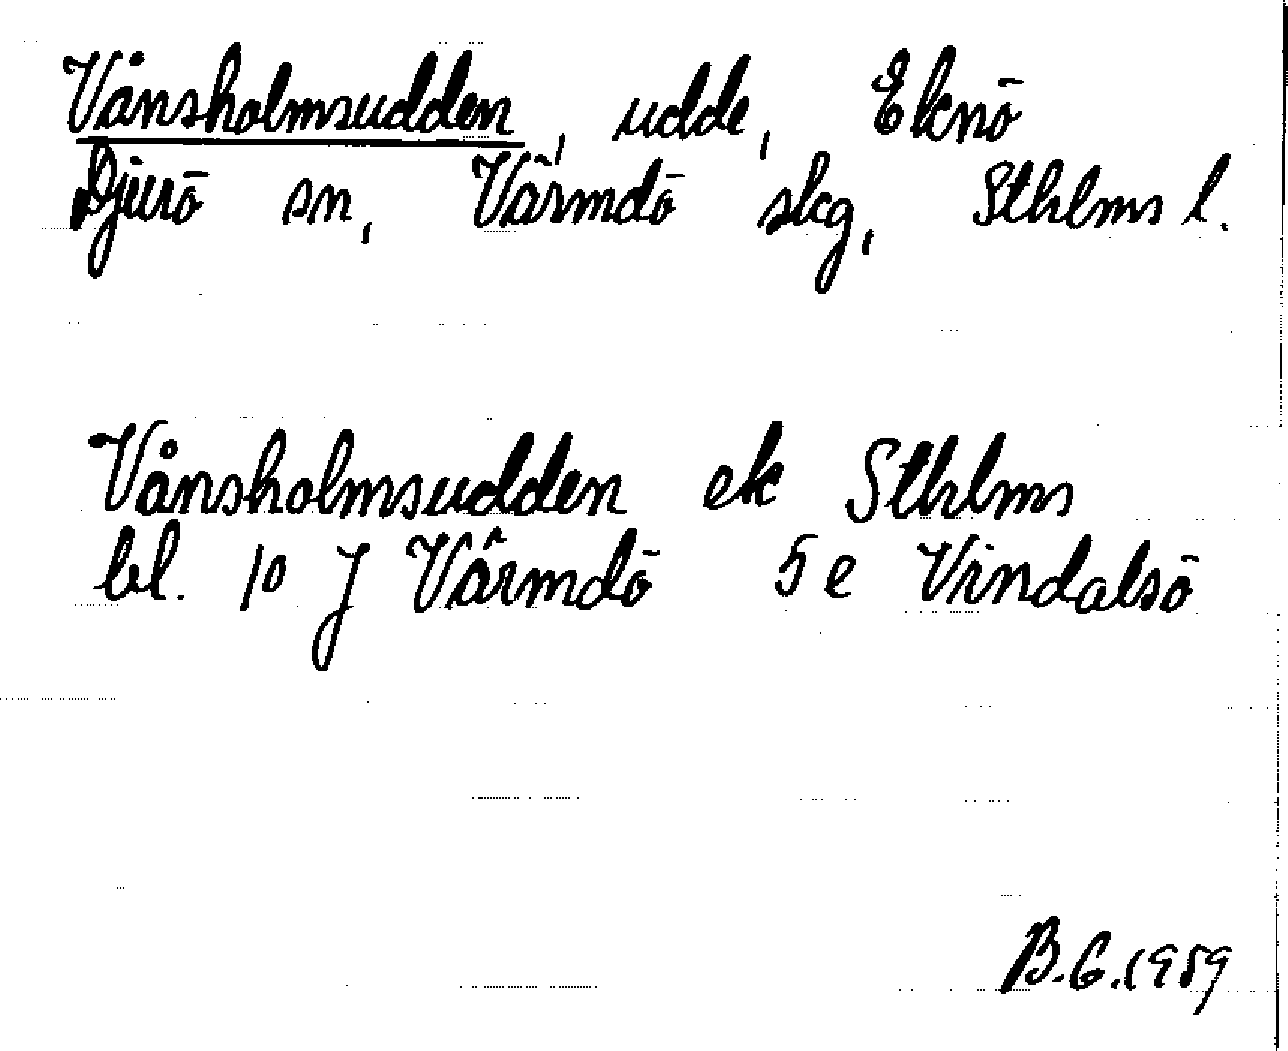 Vånsholmsudden, udde, Eknö
Djurö sn, Värmdö skg, Sthlms l.
Vånsholmsudden ek Sthlms
bl. 10 J Värmdö 5 e Vindalsö
B.G.1959